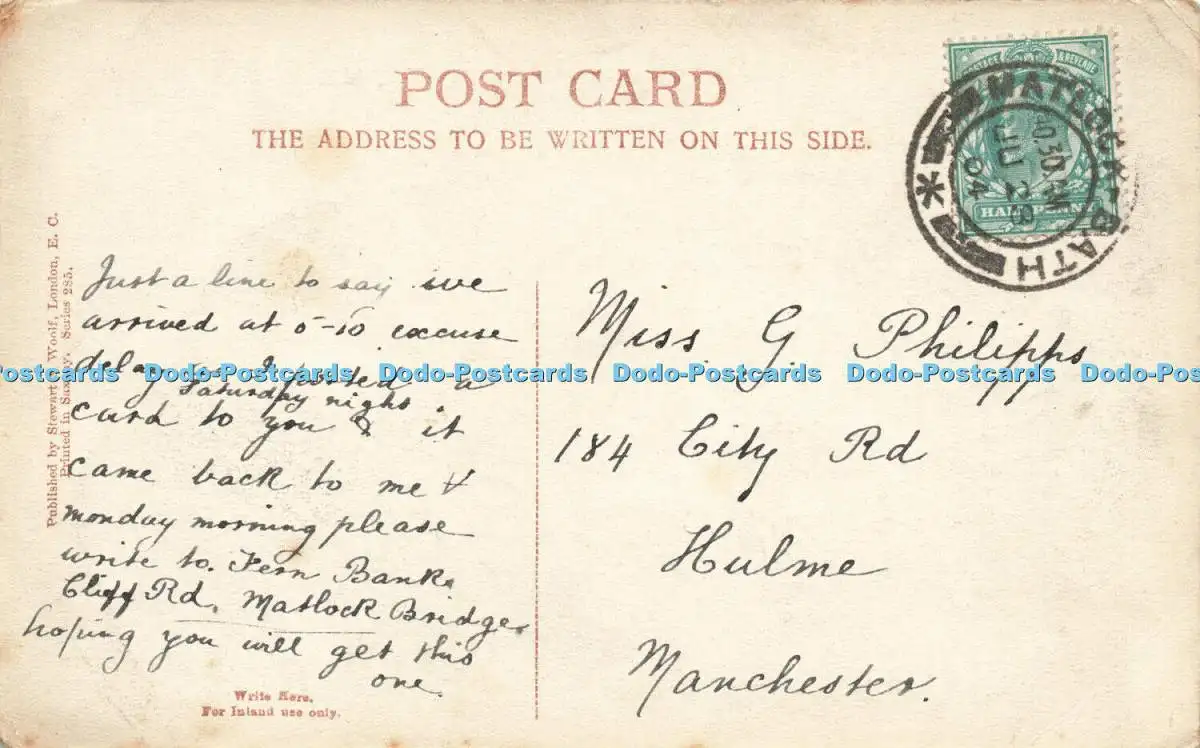 POST CARD
THE ADDRESS TO BE WRITTEN ON THIS SIDE.
POSTAGE & REVENUE
HALFPENNY
MATLOCK-BATH
JU 28
04
Published by Stewart & Woolf, London, E. C.
Printed in Saxony. Series 285.
Just a line to say we
arrived at 5-10 excuse
delay as I posted a
Saturday night
card to you & it
came back to me
monday morning please
write to. Fern Bank
Cliff Rd, Matlock Bridge.
hoping you will get this
one.
Write Here,
For Inland use only.
Miss G Philipps
184 City Rd
Hulme
Manchester.
ostcards Dodo-Postcards Dodo-Postcards Dodo-Postcards Dodo-Postcards Dodo-Pos